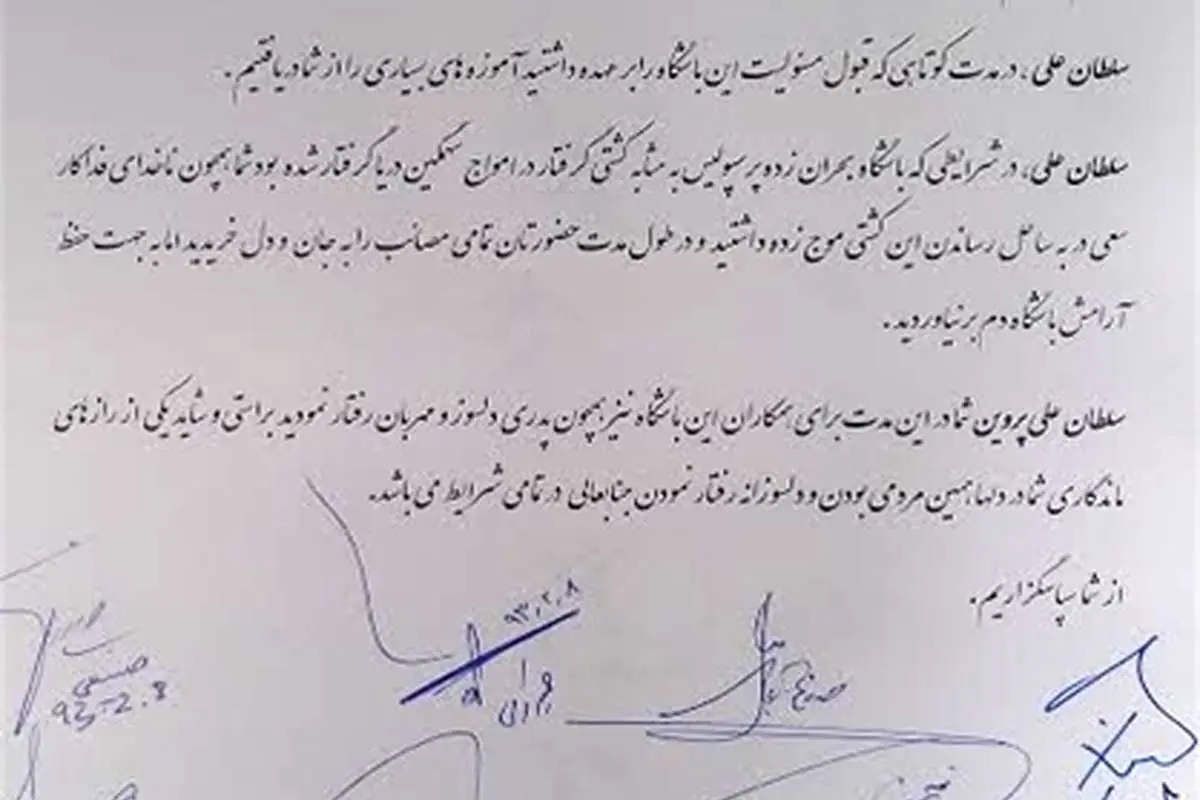 سلطان علی، در مدت کوتاهی که قبول مسئولیت این باشگاه را بر عهده داشتید آموزه های بسیاری را از شما دریافتیم.
سلطان علی، در شرایطی که باشگاه بحران زده پرسپولیس به مثابه کشتی گرفتار در امواج سهمگین دریا گرفتار شده بود شما همچون ناخدای فداکار
سعی در به ساحل رساندن این کشتی موج زده داشتید و در طول مدت حضورتان تمامی مصائب را به جان و دل خریدید اما به جهت حفظ
آرامش باشگاه دم بر نیاوردید.
سلطان علی پروین شما در این مدت برای همکاران این باشگاه نیز همچون پدری دلسوز و مهربان رفتار نمودید براستی و شاید یکی از رازهای
ماندگاری شما در دلها همین مردمی بودن و دلسوزانه رفتار نمودن جنابعالی در تمامی شرایط می باشد.
از شما سپاسگزاریم.
۹۳،۲،۸
93-2.8